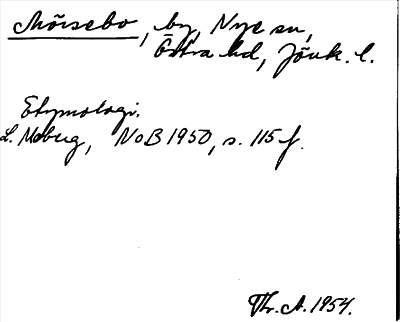 Mörsebo, by, Nye sn,
Östra hd, Jönk. l.
Etymologi.
L. Moberg, NoB 1950, s. 115 f.
Thr. A. 1954.